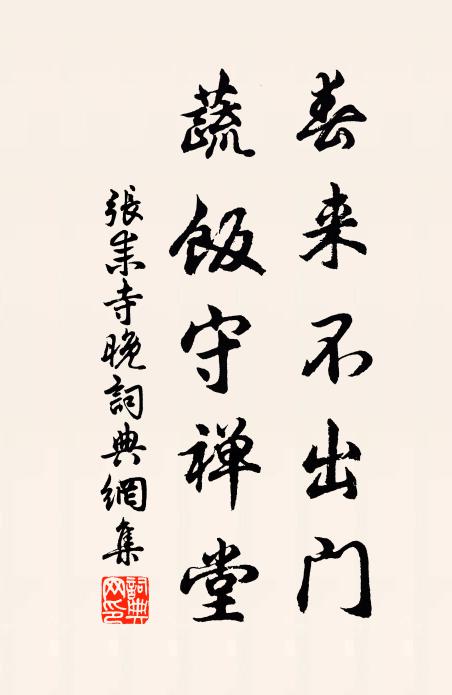 春来不出门
蔬飯守禅堂
張耒寺晚詞典網集
詞典网印